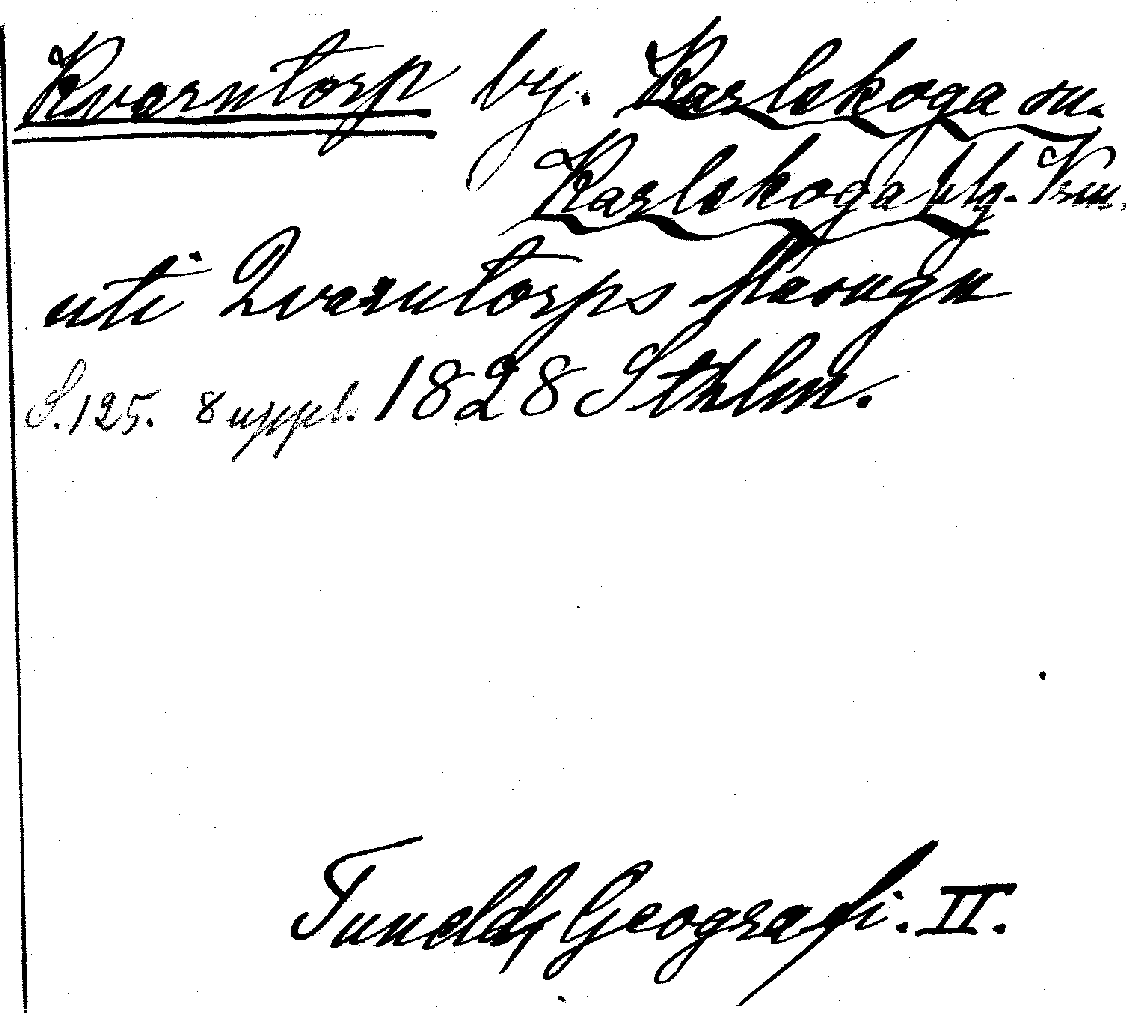 Kvarntorp by. Karlskoga sn.
Karlskoga blg. Vrm.
uti Qvarntorps
S. 125. 8 uppl. 1828 Sthlm.
Tunelds Geografi. II.